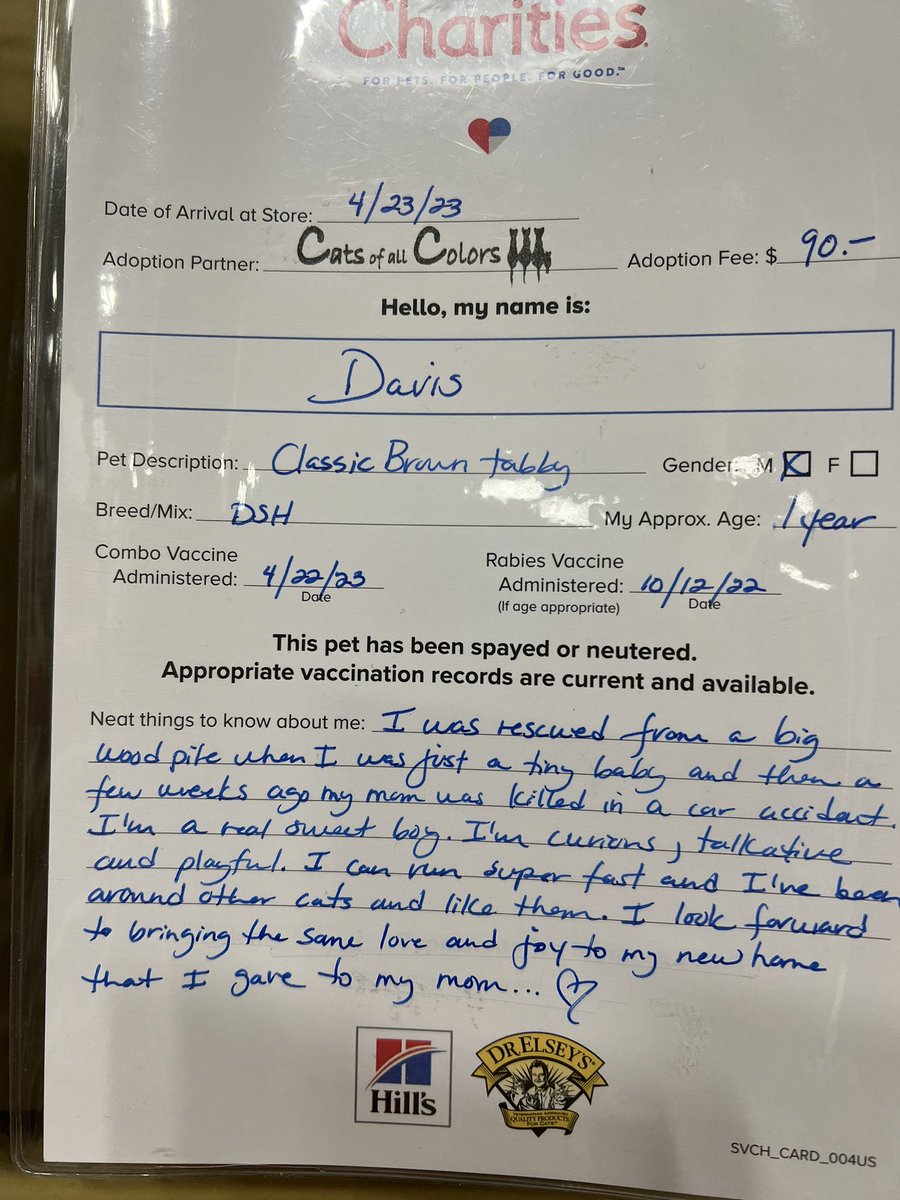 Charities
FOR PETS. FOR PEOPLE. FOR GOOD.™
Date of Arrival at Store: 4/23/23
Adoption Partner: Cats of all Colors Adoption Fee: $ 90.-
Hello, my name is:
Davis
Pet Description: Classic Brown tabby Gender: M F
Breed/Mix: DSH My Approx. Age: 1 year
Combo Vaccine Rabies Vaccine
Administered: 4/22/23 Administered: 10/12/22
Date (If age appropriate) Date
This pet has been spayed or neutered.
Appropriate vaccination records are current and available.
Neat things to know about me: I was rescued from a big
wood pile when I was just a tiny baby and then a
few weeks ago my mom was killed in a car accident.
I'm a real sweet boy. I'm curious, talkative
and playful. I can run super fast and I've been
around other cats and like them. I look forward
to bringing the same love and joy to my new home
that I gave to my mom...
Hill's
DR. ELSEY'S
VETERINARIAN APPROVED
QUALITY PRODUCTS
FOR CATS
SVCH_CARD_004US